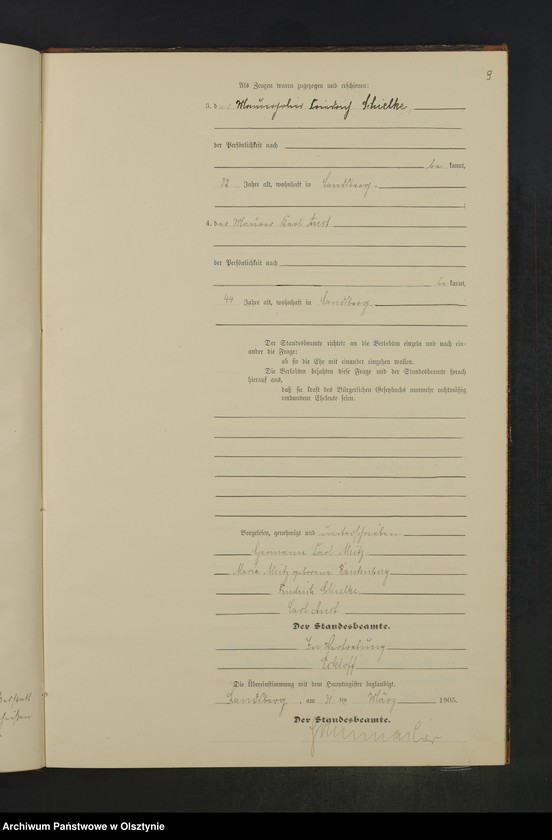 9
Als Zeugen waren zugezogen und erschienen:
3. der Maurerpolier Friedrich Schielke,
der Persönlichkeit nach
be kannt,
Jahre alt, wohnhaft in Landsberg
4. der Maurer Carl
der Persönlichkeit nach
be kannt,
44 Jahre alt, wohnhaft in Landsberg
Der Standesbeamte richtete an die Verlobten einzeln und nach ein-
ander die Frage:
ob sie die Ehe mit einander eingehen wollen.
Die Verlobten bejahten diese Frage und der Standesbeamte sprach
hierauf aus,
daß sie kraft des Bürgerlichen Gesetzbuchs nunmehr rechtmäßig
verbundene Eheleute seien.
Vorgelesen, genehmigt und unterschrieben
Hermann Carl
Maria geborene
Friedrich Schielke
Carl
Der Standesbeamte.
In Vertretung
Eckloff
Die Übereinstimmung mit dem Hauptregister beglaubigt.
Landsberg, am März 1905.
Der Standesbeamte.
Archiwum Państwowe w Olsztynie